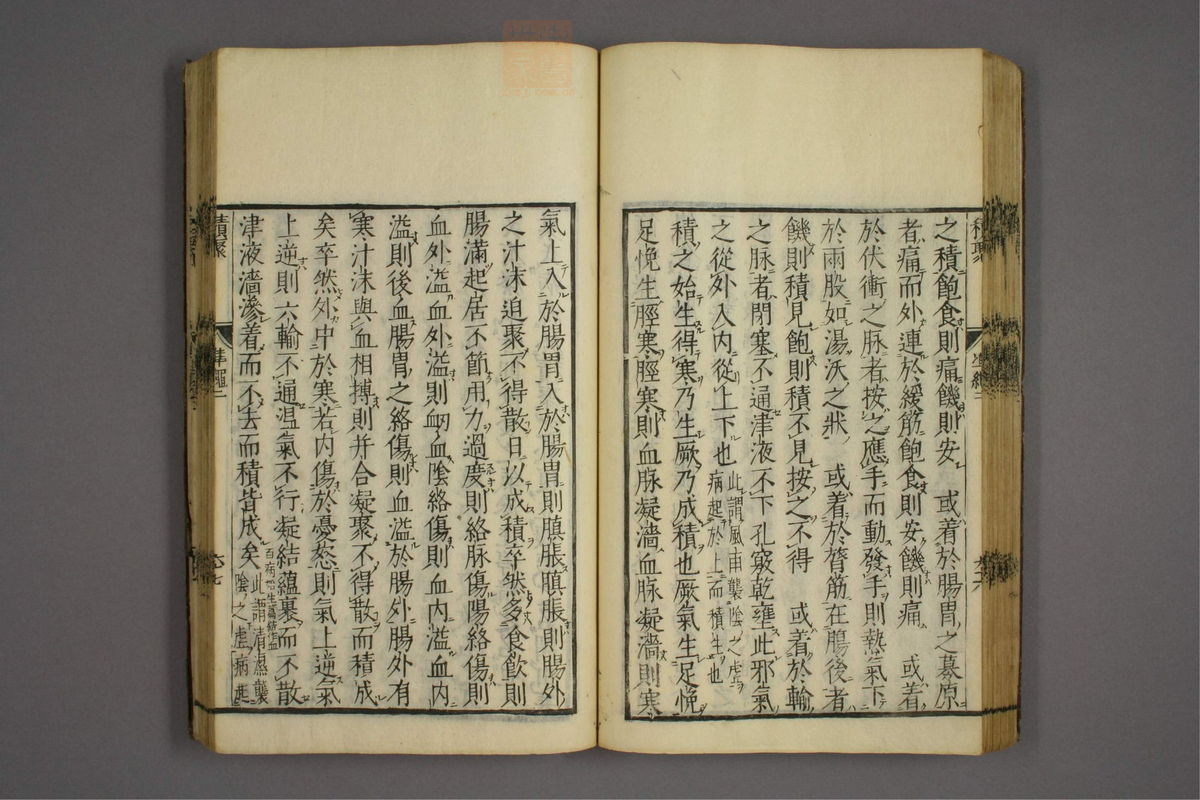 之積飽食則痛饑則安　或着於腸胃之募原
者痛而外連於緩筋飽食則安饑則痛　或着
於伏衝之脉者按之應手而動發手則熱氣下
於兩股如湯沃之狀　或着於膂筋在腸後者
饑則積見飽則積不見按之不得　或着於輸
之脉者閉塞不通津液不下孔竅乾壅此邪氣
之從外入內從上下也此謂風雨襲陰之虛
病起於上而積生也
積之始生得寒乃生厥乃成積也厥氣生足悗
足悗生脛寒脛寒則血脉凝濇血脉凝濇則寒
積聚
六十六
氣上入於腸胃入於腸胃則䐜脹䐜脹則腸外
之汁沫迫聚不得散日以成積卒然多食飲則
腸滿起居不節用力過度則絡脉傷陽絡傷則
血外溢血外溢則衂血陰絡傷則血內溢血內
溢則後血腸胃之絡傷則血溢於腸外腸外有
寒汁沫與血相搏則并合凝聚不得散而積成
矣卒然外中於寒若內傷於憂怒則氣上逆氣
上逆則六輸不通温氣不行凝結蘊裹而不散
津液濇滲着而不去而積皆成矣百病始生篇
此謂清濕襲
陰之虛病起
積聚
準繩二
六十七